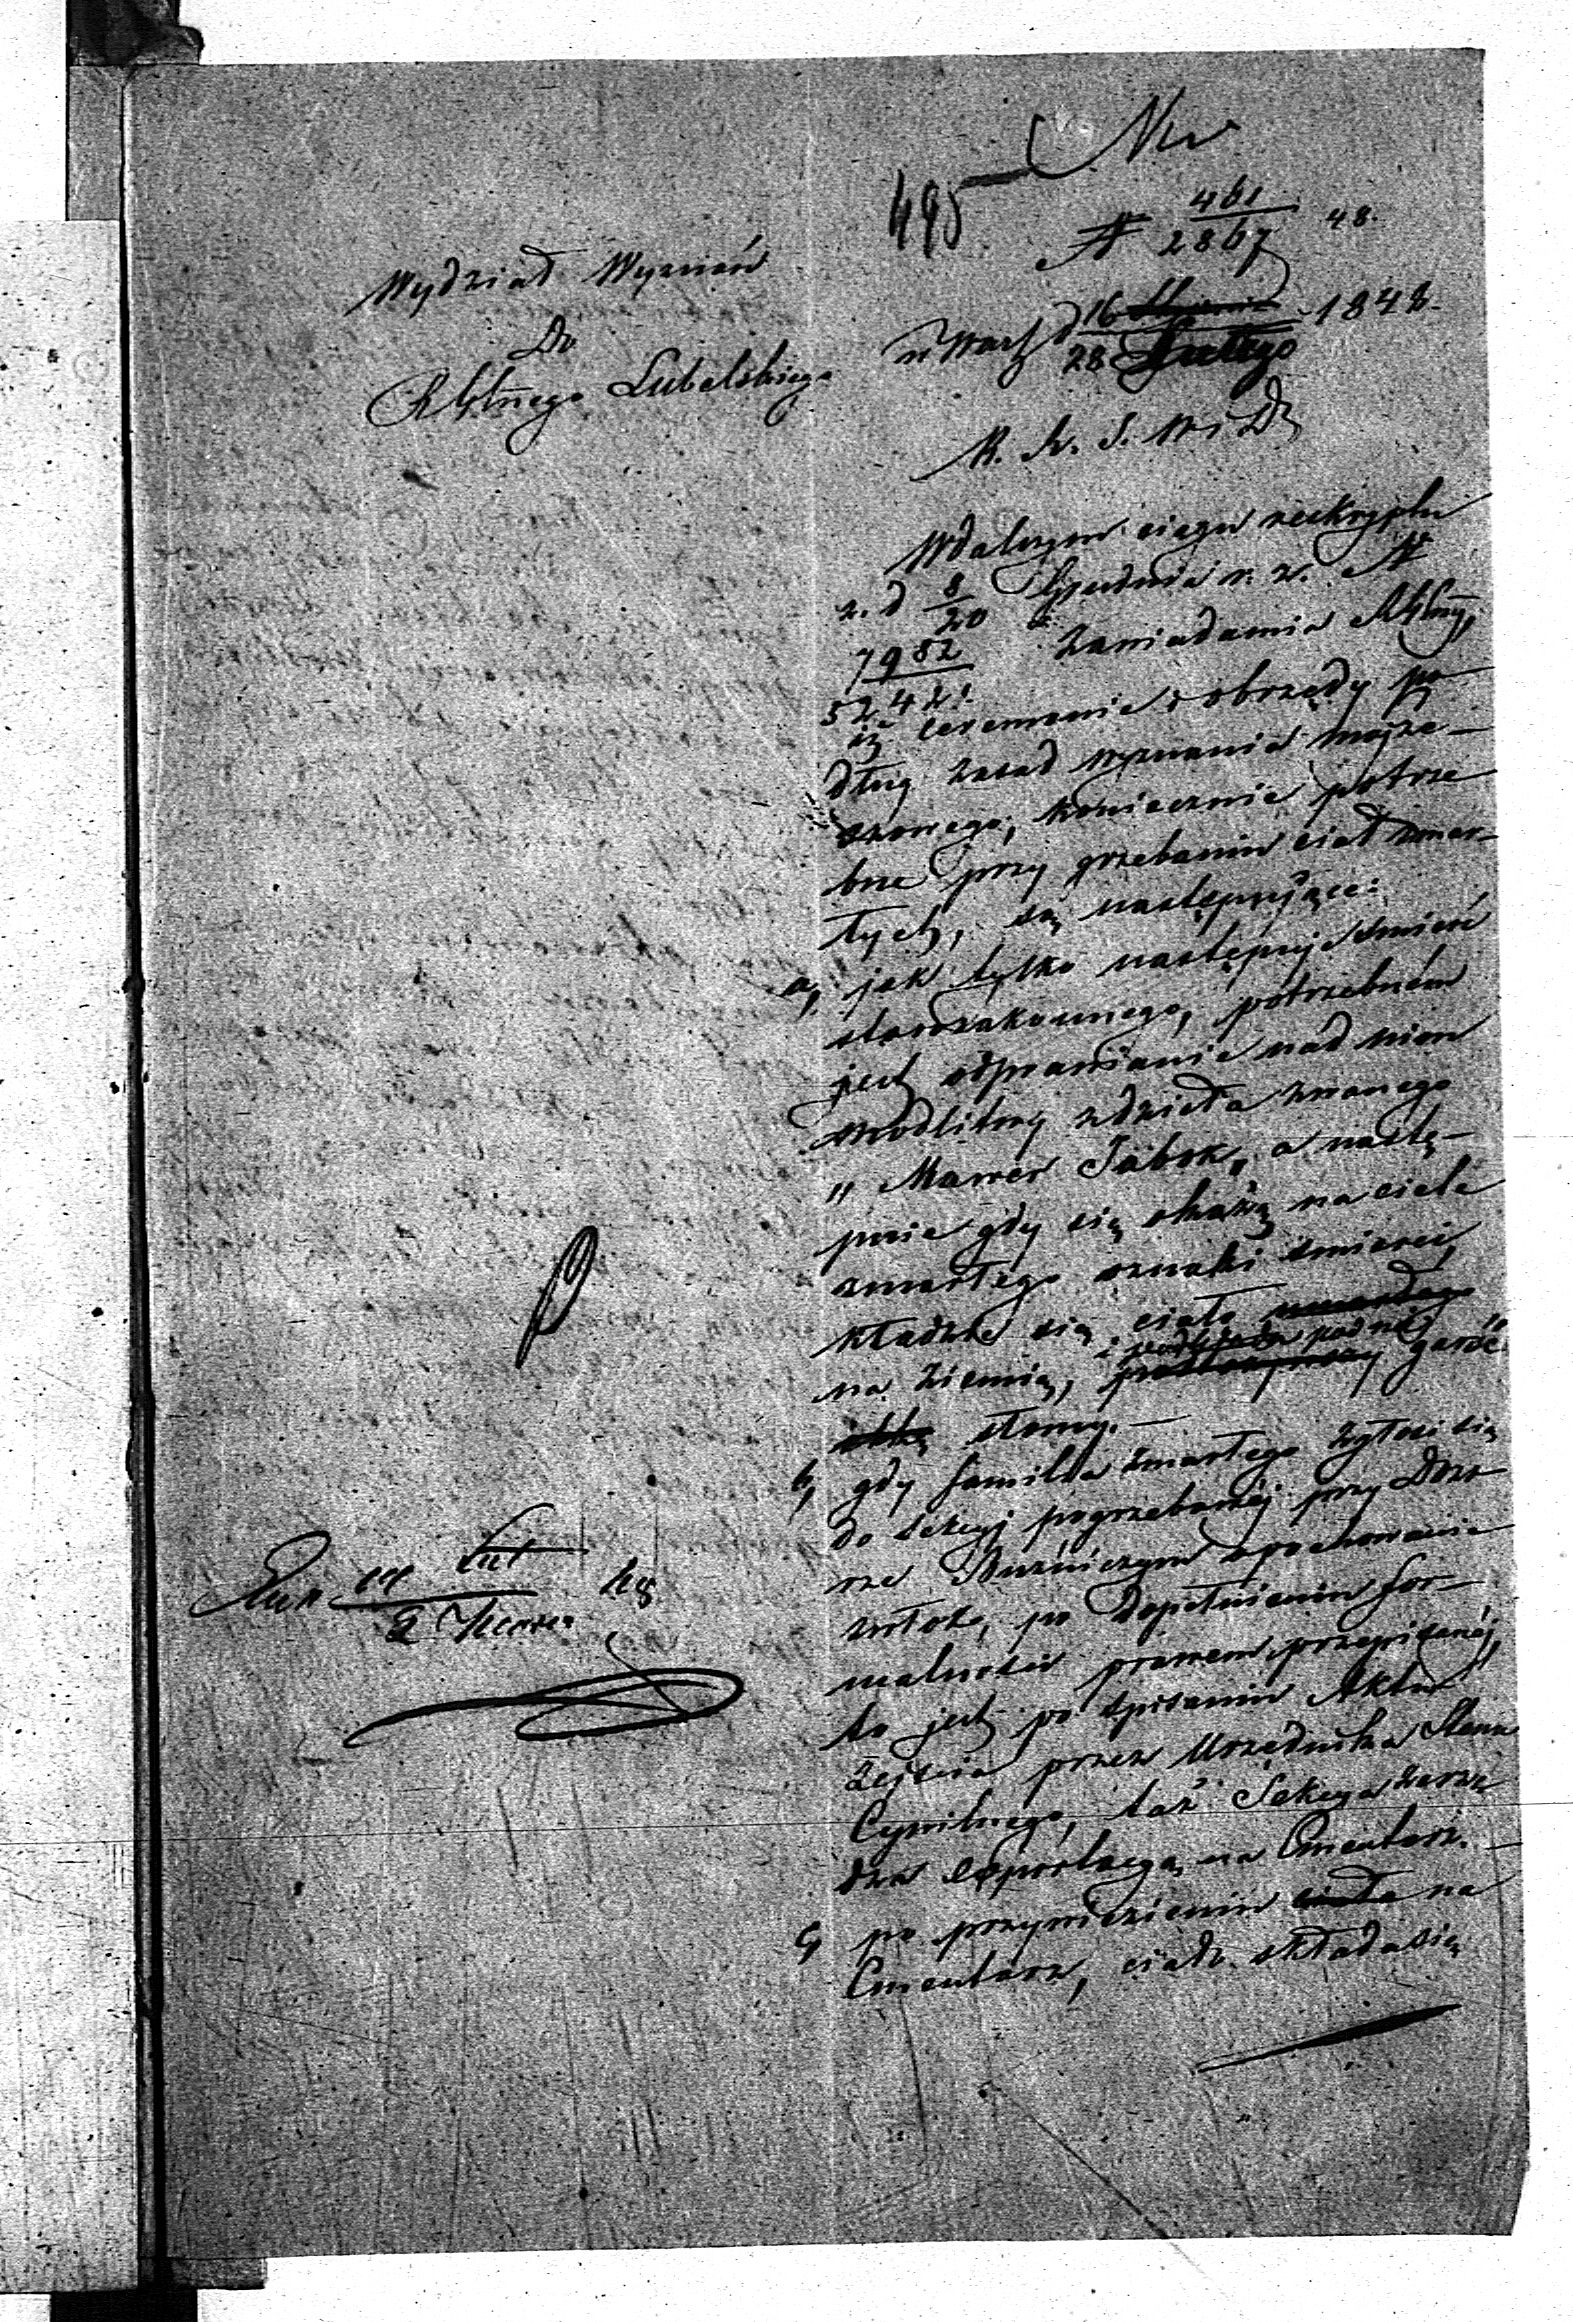 495
No 461/2867 48.
Wydział Wyznań
Do
RGłnego Lubelskiego
w Warsz d 16/28 Lutego 1848.
K. R. S. W. i D
W dalszym ciągu reskryptu
z. d 8/20 Grudnia r. z. No
7952/52421 zawiadamia RGłny,
iż ceremonie i obrzędy po
dług zasad wyznania mojże-
szowego, koniecznie potrze
bne przy grzebaniu ciał zmar-
łych, są następujące:
a, jak tylko następuje śmierć
starozakonnego, potrzebném
jest odprawianie nad nim
modlitwy z dzieła zwanego
" Mawer Jabok, a nastę-
pnie gdy się okażą na ciele
zmarłego oznaki śmierci,
kładzie się ciało
na ziemię, i pod nie garść
słomy. —
b, gdy familia zmarłego zgłosi się
do Sekcyi pogrzebowéj przy Dozo
rze Bużniczym o pochowanie
zwłok, po dopełnieniu for-
malności prawem przepisanéj,
to jest po spisaniu Aktu
Zejścia przez Urzędnika Stanu
Cywilnego, taż Sekcya zarzą
dza exportacyą na Cmentarz. —
c, po przywiezieniu ciała na
Cmentarz, ciało składa się
2 Marca 48